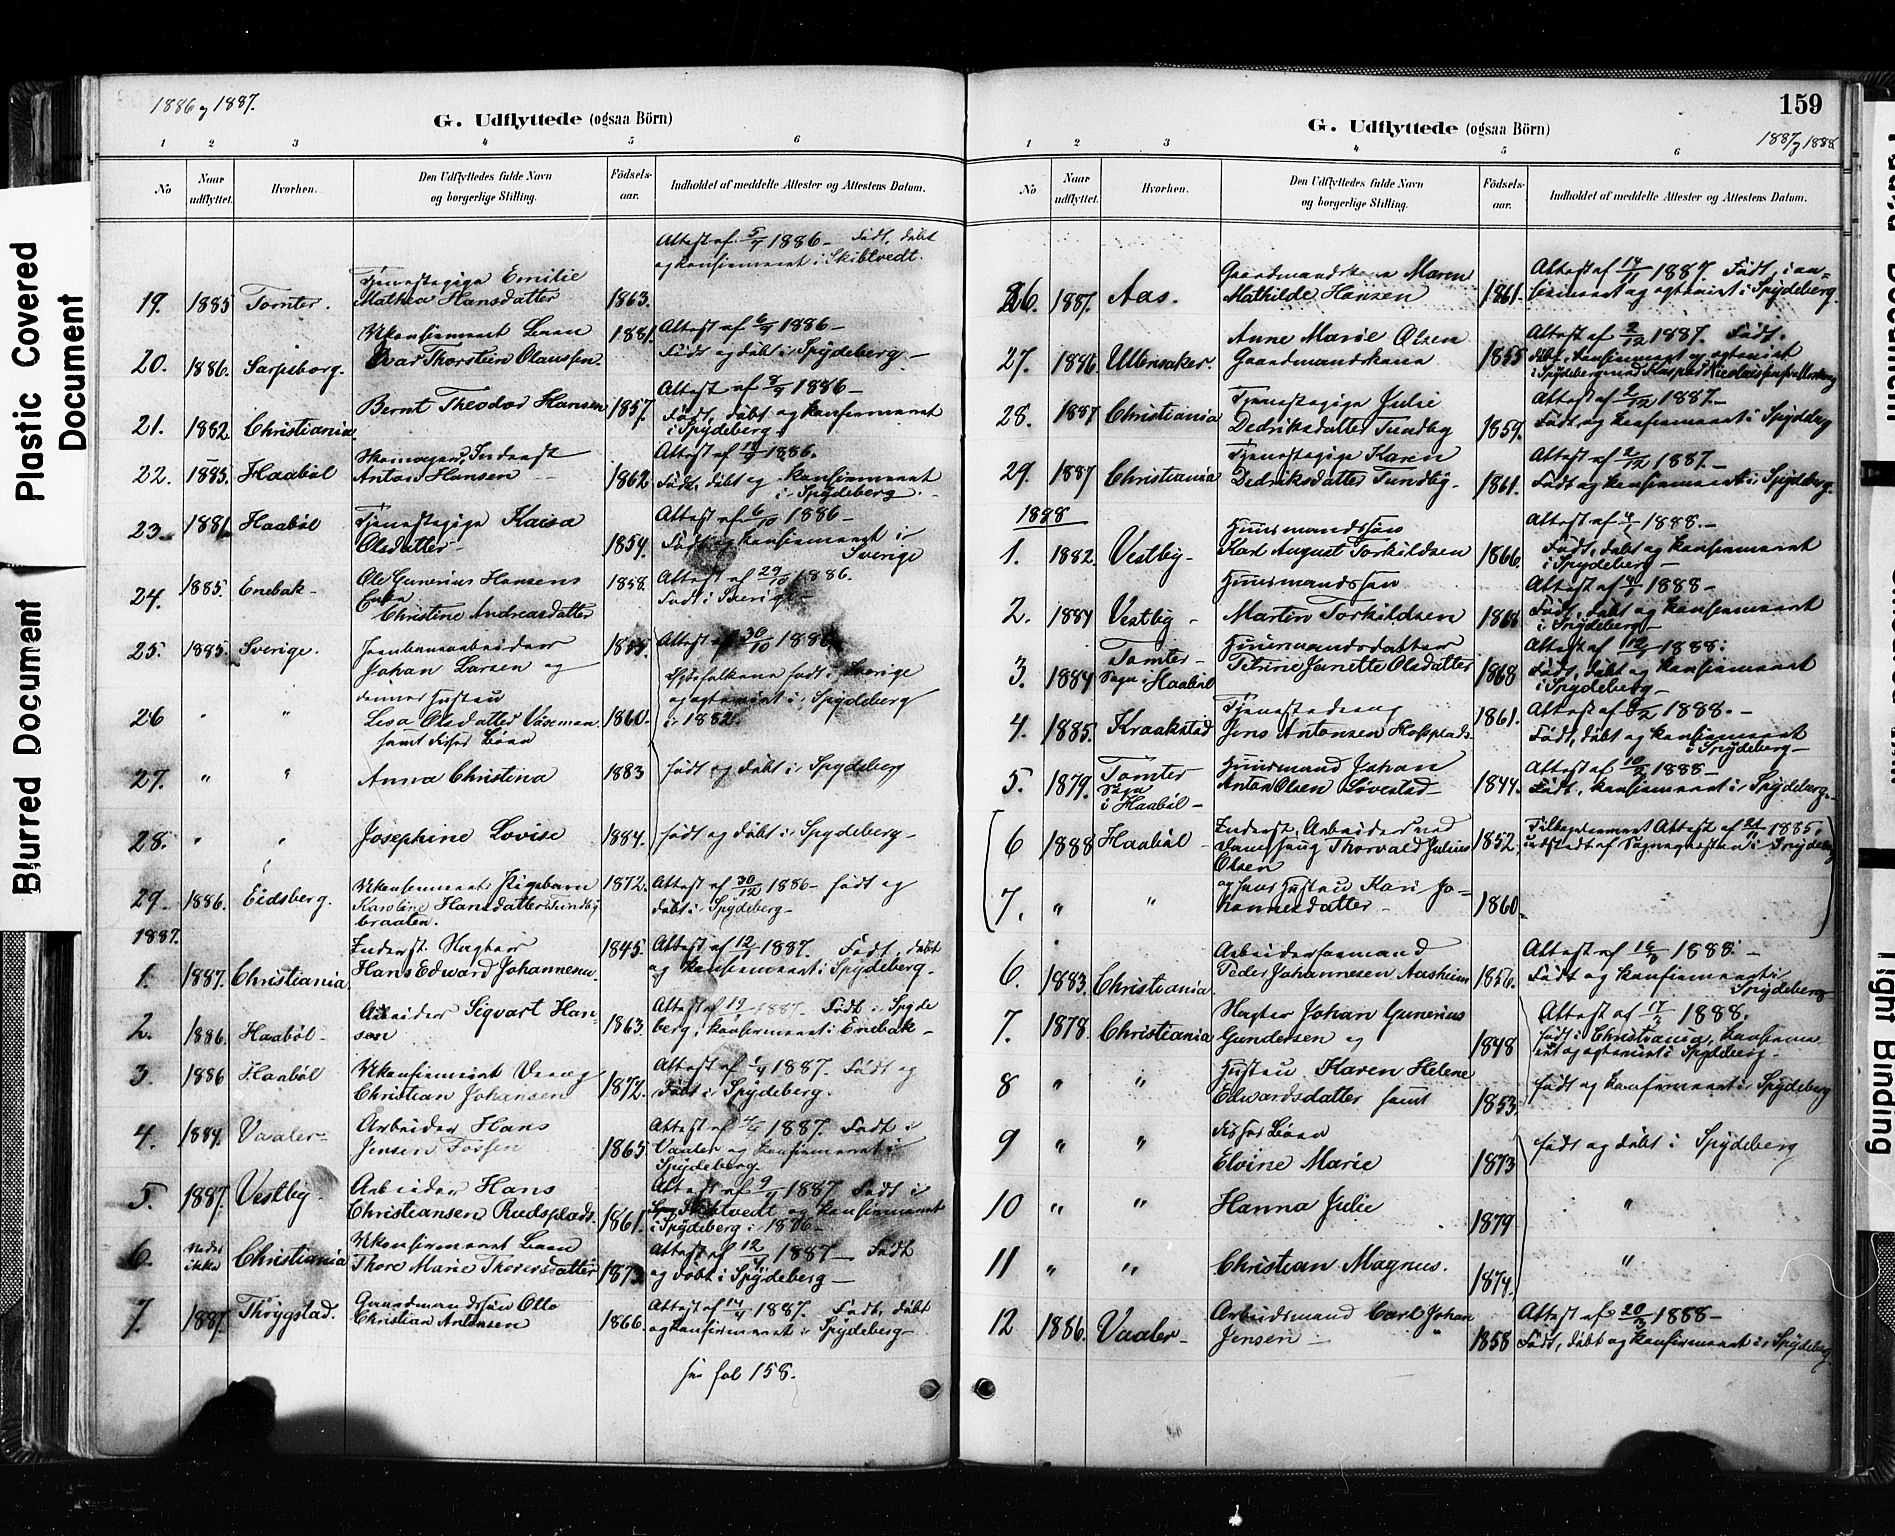 Plastic Covered
Document
Blurred Document
Tight Binding
1886 og 1887.
G. Udflyttede (ogsaa Börn)
1 2 3 4 5 6
No
Naar
udflyttet.
Hvorhen.
Den Udflyttedes fulde Navn
og borgerlige Stilling.
Födsels-
aar.
Indholdet af meddelte Attester og Attestens Datum.
Attest af 5/7 1886 – Født, døbt
og konfirmeret i Skibtvedt.
19. 1885 Tomter. Tjenestepige Emilie
Mathea Hansdatter 1863.
20. 1886. Sarpsborg. Ukonfirmeret Barn
Thorstein Olaussen. 1881. Attest af 1886 –
Født og døbt i Spydeberg –
21. 1882 Christiania. Bernt Theodor Hansen 1857. Attest af 1886 –
Født, døbt og konfirmeret
i Spydeberg
22. 1885. Haabøl Inderst
Anton Hansen 1862 Attest af 1886.
Født, døbt og konfirmeret
i Spydeberg.
23. 1881. Haabøl Tjenestepige Kaisa
Olsdatter – 1854. Attest af 6/10 1886 –
Født og konfirmeret i
Sverige
24. 1885. Enebak – Ole Gunerius Hansens
Enke
Christine Andreasdatter 1858. Attest af 29/10 1886.
Født i Sverige –
25. 1885. Sverige. Jernbanearbeider
Johan Larsen og Attest af 30/10 1886
født i Sverige
26 " " dennes Hustru
Lisa Olsdatter
samt disses Børn 1860. og ægteviet i Spydeberg
i 1882.
27. " " Anna Christina 1883 født og døbt i Spydeberg
28. " " Josephine Lovise 1884. født og døbt i Spydeberg –
29. 1886. Eidsberg. Ukonfirmeret Pigebarn
Karoline Hansdatter Sundby-
braaten. 1872. Attest af 30/12 1886 – født og
døbt i Spydeberg –
1887.
1. 1887. Christiania. Inderst. Vægter
Hans Edward Johannesen. 1845. Attest af 12/ 1887. Født, døbt
og konfirmeret i Spydeberg.
2. 1886. Haabøl – Arbeider Sigvart Han-
sen 1863. Attest af 1887. Født i Spyde
berg, konfirmeret i Enebak –
3. 1886 Haabøl Ukonfirmeret Dreng
Christian Johansen 1872. Attest af 1887. Født og
døbt i Spydeberg.
4. 1884. Vaaler – Arbeider Hans
Jensen Fossen 1865 Attest af 1887. Født i
Vaaler og konfirmeret i
Spydeberg.
5. 1887. Vestby. Arbeider Hans
Christiansen Rudsplads. 1861. Attest af 1887 Født i
Skibtvedt og konfirmeret
i Spydeberg i 1876 –
6. Christiania Ukonfirmeret Barn
Thora Marie Thorersdatter 1873 Attest af 12/4 1887 – Født
og døbt i Spydeberg –
7. 1887. Thrygstad. Gaardmandssøn Otto
Christian Antonsen 1866. Attest af 14/4 1887. Født, døbt
og konfirmeret i Spydeberg –
se fol 158.
159
1887 og 1888.
G. Udflyttede (ogsaa Börn)
1 2 3 4 5 6
No
Naar
udflyttet.
Hvorhen.
Den Udflyttedes fulde Navn
og borgerlige Stilling.
Födsels-
aar.
Indholdet af meddelte Attester og Attestens Datum.
26. 1887. Aas. Gaardmandskone Maren
Mathilde Hansen 1861. Attest af 14/11 1887. Født, kon-
firmeret og ægteviet i Spydeberg.
27. 1886 Ullensaker. Anne Marie Olsen
Gaardmandskone 1855 Attest af 2/12 1887. Født,
døbt, konfirmeret og ægteviet
i Spydeberg med Kasper Nicolaisen
28. 1887 Christiania Tjenestepige Julie
Dedriksdatter Tundby 1859. Attest af 2/12 1887. –
Født og konfirmeret i Spydeberg
29. 1887 Christiania Tjenestepige Karen
Dedriksdatter Tundby. 1861. Attest af 2/12 1887. –
Født og konfirmeret i Spydeberg.
1888
1. 1882. Vestby – Huusmandssøn
Karl August Torkildsen 1866. Attest af 4/1 1888. –
Født, døbt og konfirmeret
i Spydeberg –
2. 1884 Vestby – Huusmandssøn
Martin Torkildsen 1868 Attest af 4/1 1888 –
Født, døbt og konfirmeret
i Spydeberg –
3. 1884 Tomter –
Sogn i Haabøl Huusmandsdatter
Petrine Janette Olsdatter 1868 Attest af 1888.
Født, døbt og konfirmeret
i Spydeberg –
4. 1885. Kraakstad Tjenestedreng
Jens Antonsen 1861. Attest af 1888. –
Født, døbt og konfirmeret
i Spydeberg –
5. 1879. Tomter
Sogn
i Haabøl – Huusmand Johan
Anton Olsen Løvestad – 1844. Attest af 10/2 1888 –
Født, konfirmeret i Spydeberg.
6 1888 Haabøl – Inderst, Arbeider ved
Thorvald Julius
Olsen 1852. Attest af 21/11 1885.
udstedt af Sognepresten i Spydeberg
7. " " og hans Hustru Kari Jo-
hannesdatter – 1860.
6. 1883. Christiania Arbeidsformand
Peder Johannesen Aasheim 1856. Attest af 1888. –
Født og konfirmeret i
Spydeberg
7. 1878. Christiania Vægter Johan Gunerius
Gundersen og 1848 Attest af 1888.
født i Christiania, konfirme-
ret og ægteviet i Spydeberg –
8 " " Hustru Karen Helene
Edwardsdatter samt 1853. født og konfirmeret i Spydeberg
9 " " disses Børn
Elvine Marie 1873 født og døbt i Spydeberg
10 " " Hanna Julie 1879 "
11 " " Christian Magnus. 1874. "
12 1886. Vaaler – Arbeidsmand Carl Johan
Jensen – 1858 Attest af 20/3 1888 –
Født, døbt og konfirmeret i Spydeberg